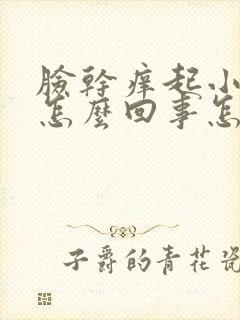 臉幹癢起小
怎麼回事怎
子爵的青花瓷